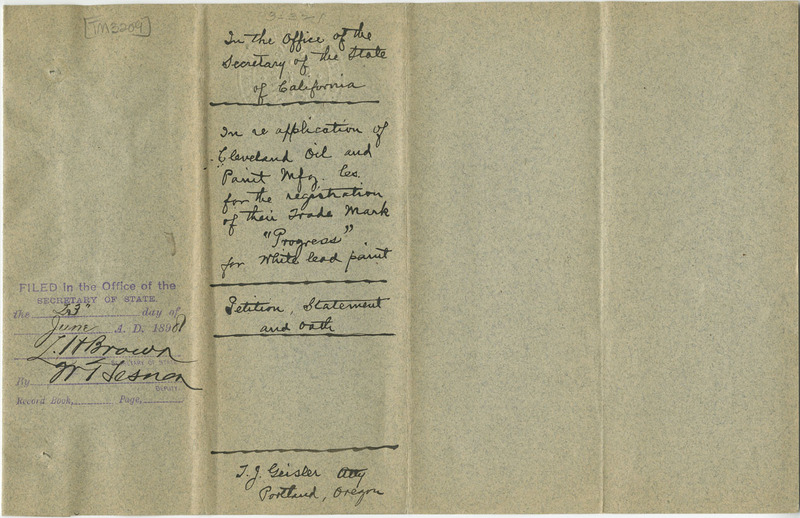 [TM3209]
In the Office of the
Secretary of the State
of California
In re application of
Cleveland Oil and
Paint Mfg. Co.
for the registration
of their Trade Mark
"Progress"
for White lead paint
Petition, Statement
and Oath
T. J. Geisler Atty
Portland, Oregon
FILED in the Office of the
SECRETARY OF STATE.
the 23" day of
June A. D. 1898
L. H. Brown
SECRETARY OF STATE
By
DEPUTY
Record Book, Page,